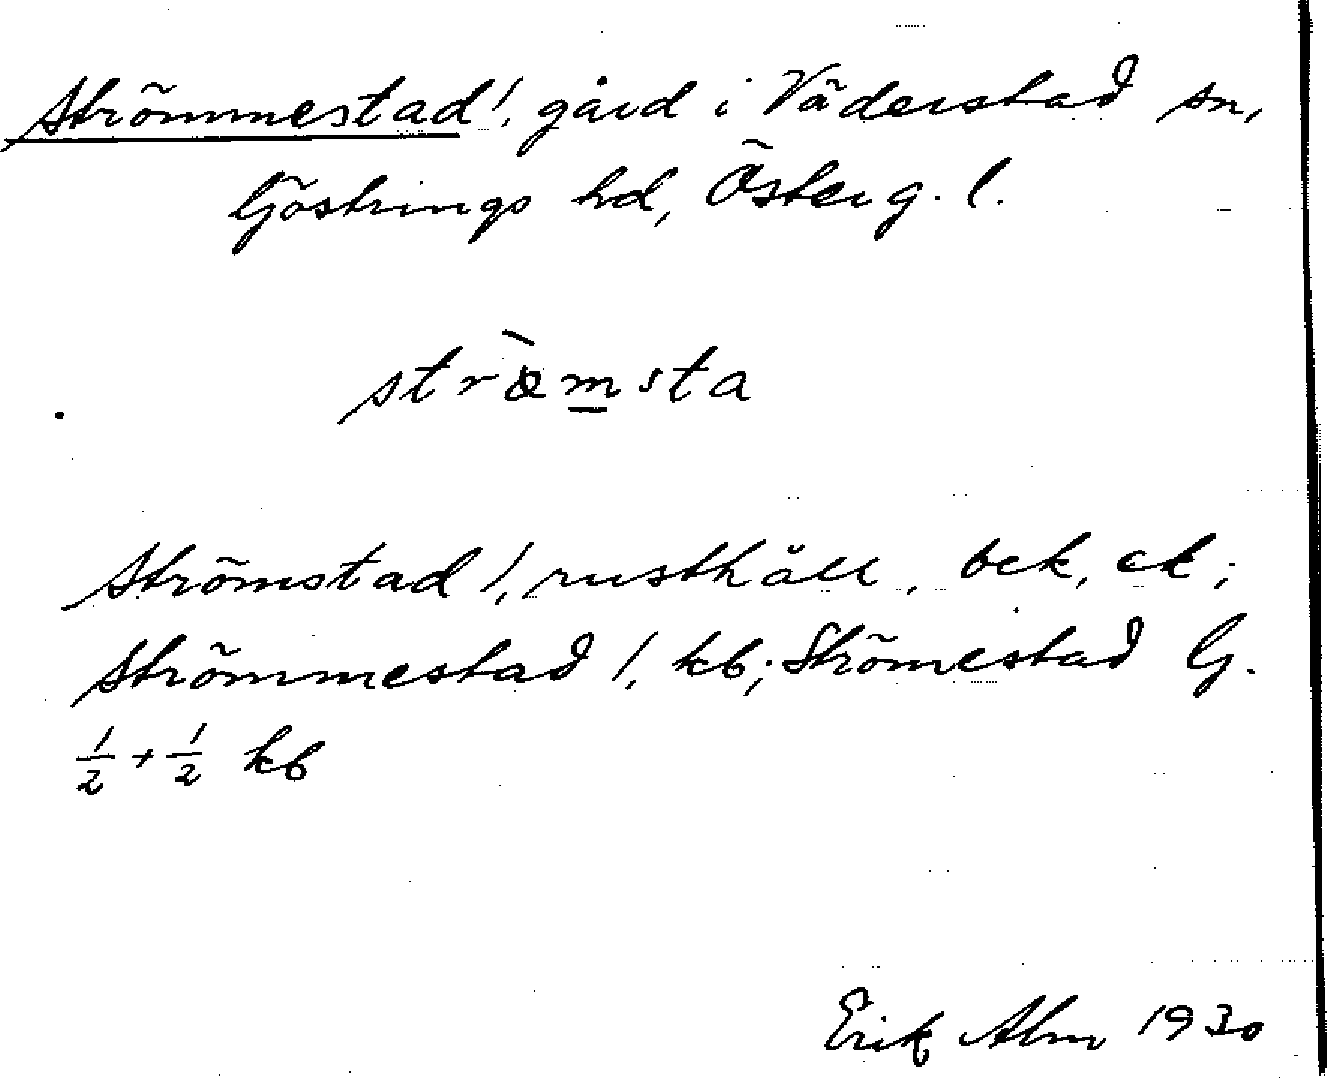 Strömmestad!, gård i Väderstad sn,
Göstrings hd, Österg. l.
strö̀m̲sta
Strömstad!, rusthåll, bek, ek;
Strömmestad!, kb; Strömestad G.
1/2 + 1/2 kb
Erik Alm 1930